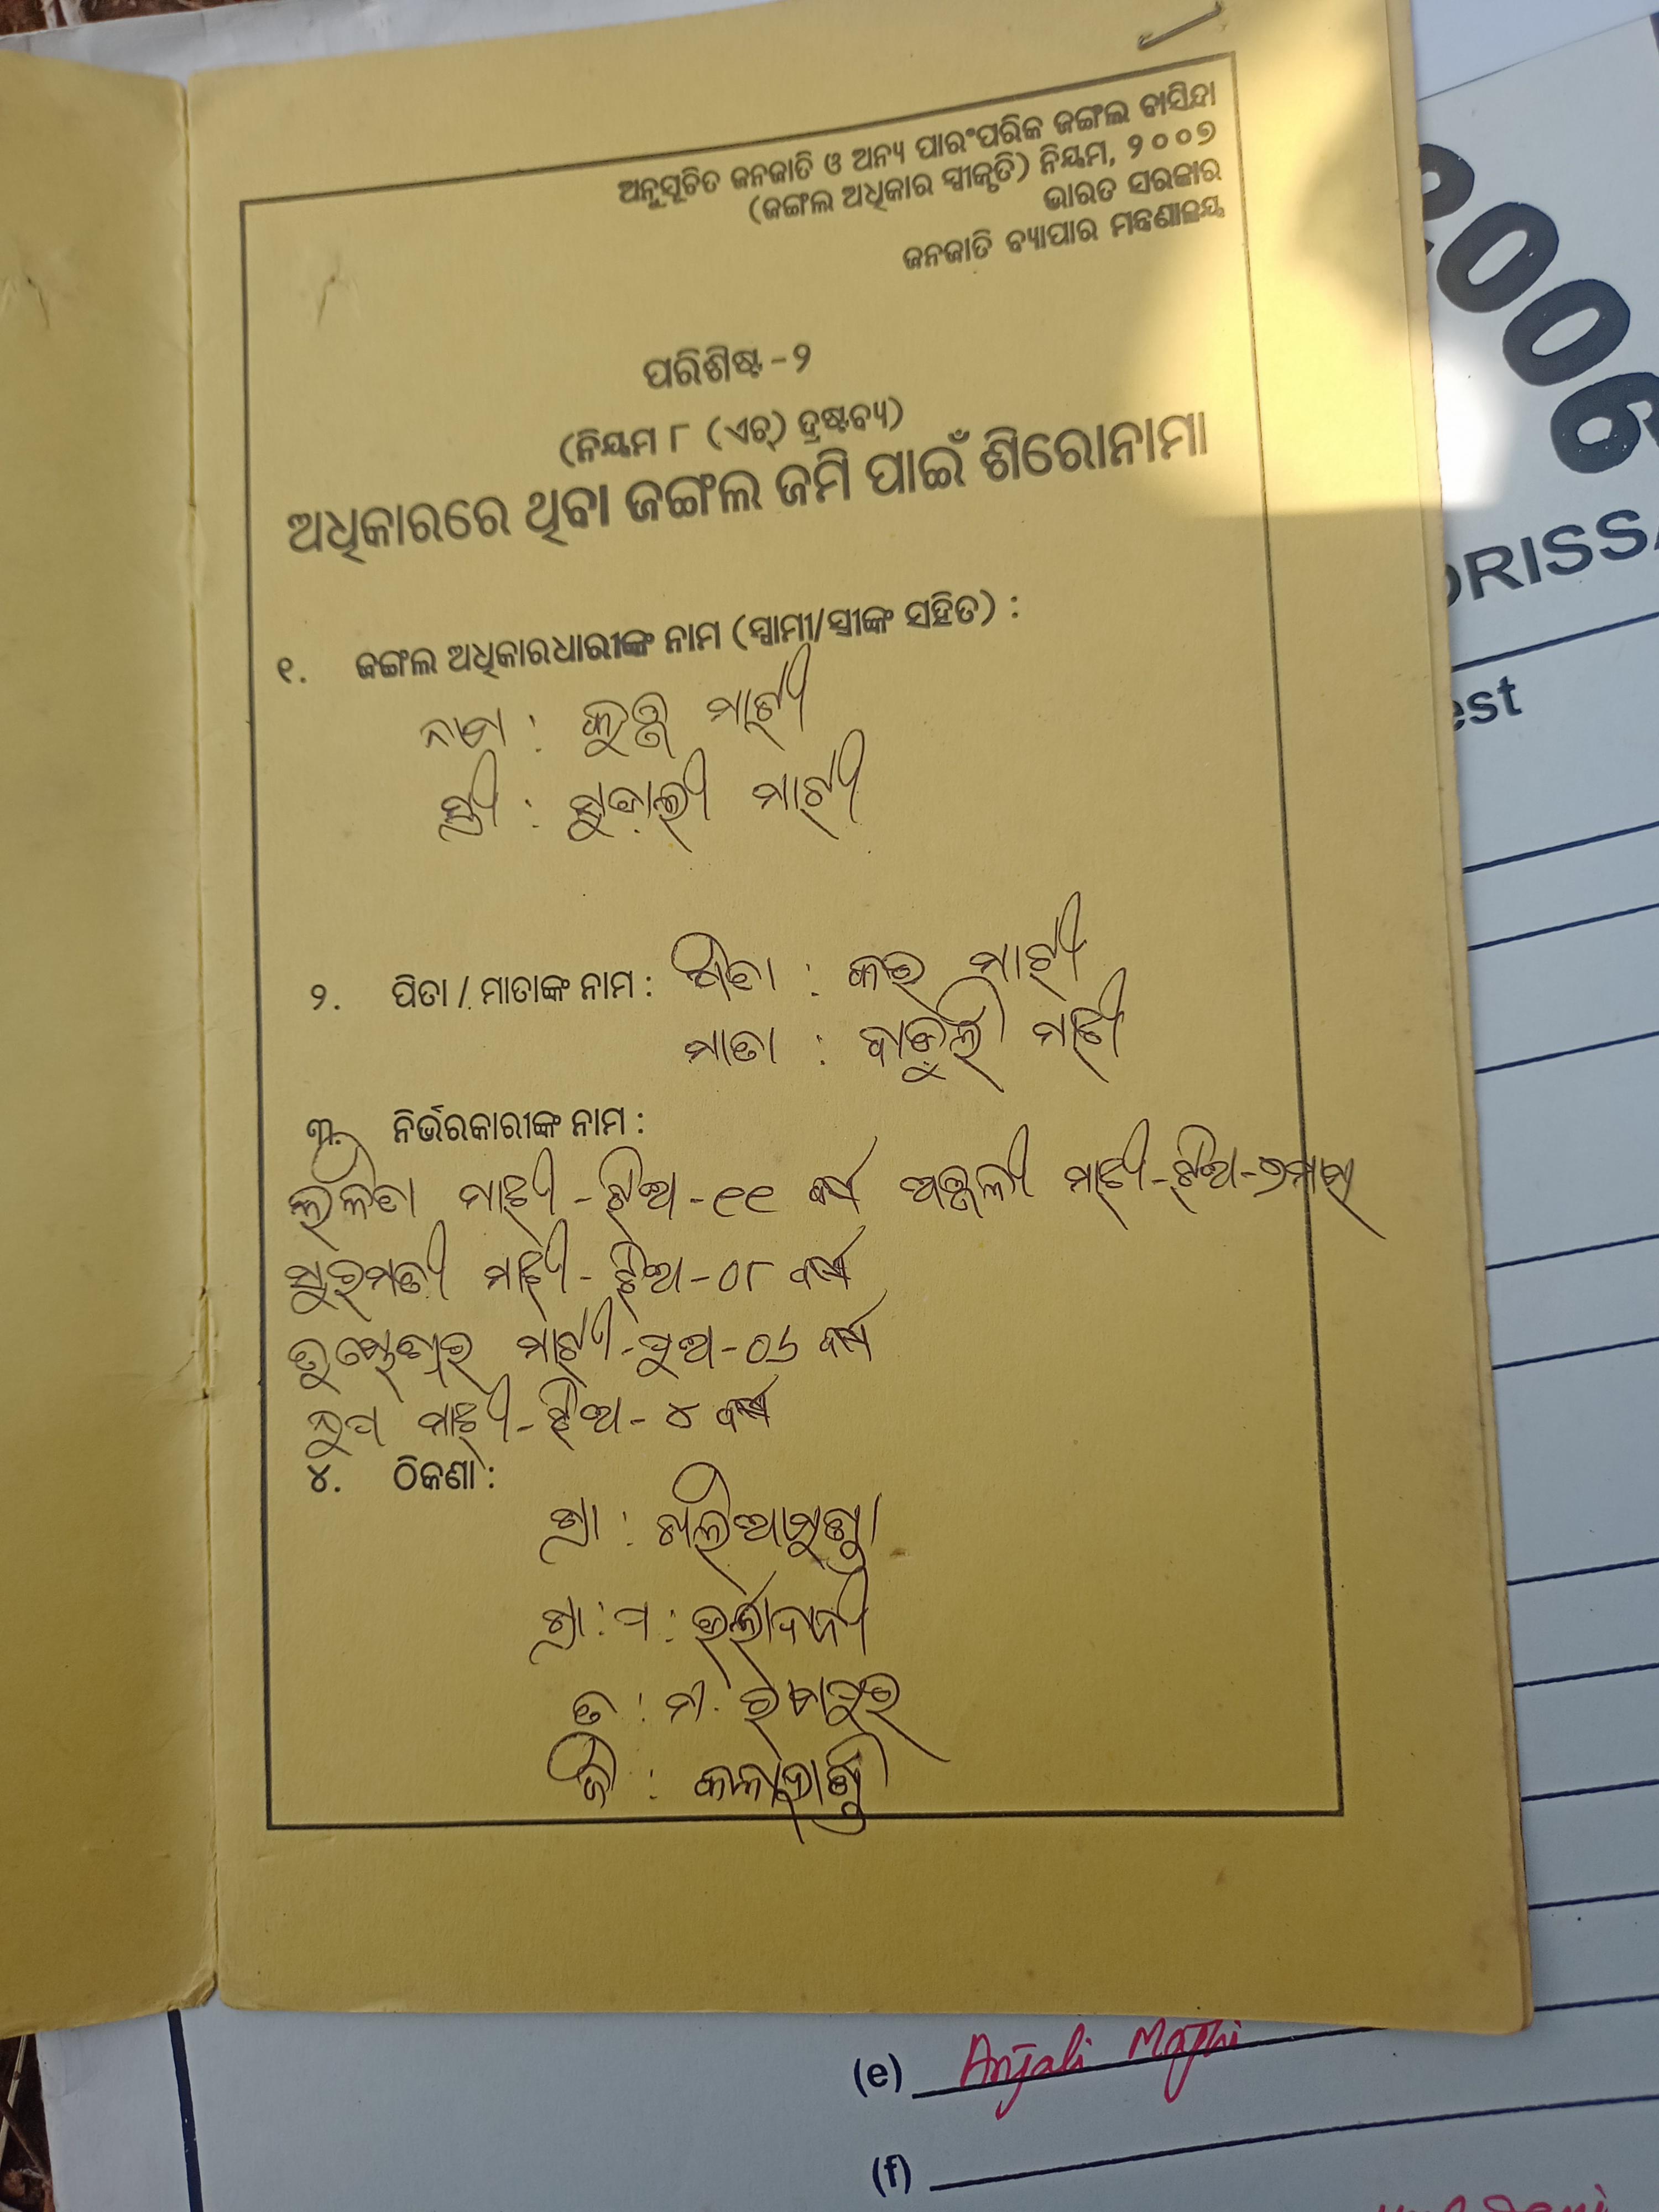 ଅନୁସୂଚିତ ଜନଜାତି ଓ ଅନ୍ୟ ପାରଂପରିକ ଜଙ୍ଗଲ ବାସିନ୍ଦା
(ଜଙ୍ଗଲ ଅଧିକାର ସ୍ୱୀକୃତି) ନିୟମ, ୨୦୦୭
ଭାରତ ସରକାର
ଜନଜାତି ବ୍ୟାପାର ମନ୍ତ୍ରଣାଳୟ
ପରିଶିଷ୍ଟ - ୨
(ନିୟମ ୮ (ଏଚ୍) ଦ୍ରଷ୍ଟବ୍ୟ)
ଅଧିକାରରେ ଥିବା ଜଙ୍ଗଲ ଜମି ପାଇଁ ଶିରୋନାମା
୧. ଜଙ୍ଗଲ ଅଧିକାରଧାରୀଙ୍କ ନାମ (ସ୍ୱାମୀ/ସ୍ତ୍ରୀଙ୍କ ସହିତ) :
ନାମ : ମାଝୀ
ସ୍ତ୍ରୀ : ମାଝୀ
୨. ପିତା / ମାତାଙ୍କ ନାମ : ପିତା : ମାଝୀ
ମାତା : ମାଝୀ
୩. ନିର୍ଭରକାରୀଙ୍କ ନାମ :
ଲଳିତା ମାଝୀ - ଝିଅ - ୧୧ ବର୍ଷ ଅଞ୍ଜଳୀ ମାଝୀ - ଝିଅ - ୬ ମାସ
ସୁରମତୀ ମାଝୀ - ଝିଅ - ୦୮ ବର୍ଷ
ମାଝୀ - ପୁଅ - ୦୬ ବର୍ଷ
ମାଝୀ - ଝିଅ - ୪ ବର୍ଷ
୪. ଠିକଣା :
ଗ୍ରା :
ଗ୍ରା : ପ :
ତ : ମ. ରାମପୁର
ଜି : କଳାହାଣ୍ଡି
2006
ORISSA
est
(e) Anjali Majhi
(f)